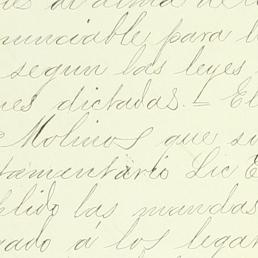 nunciable para l
segun las leyes
es dictadas. - El
Molinos que s
tamentario Lic E
plido las mandas
rado á los legat